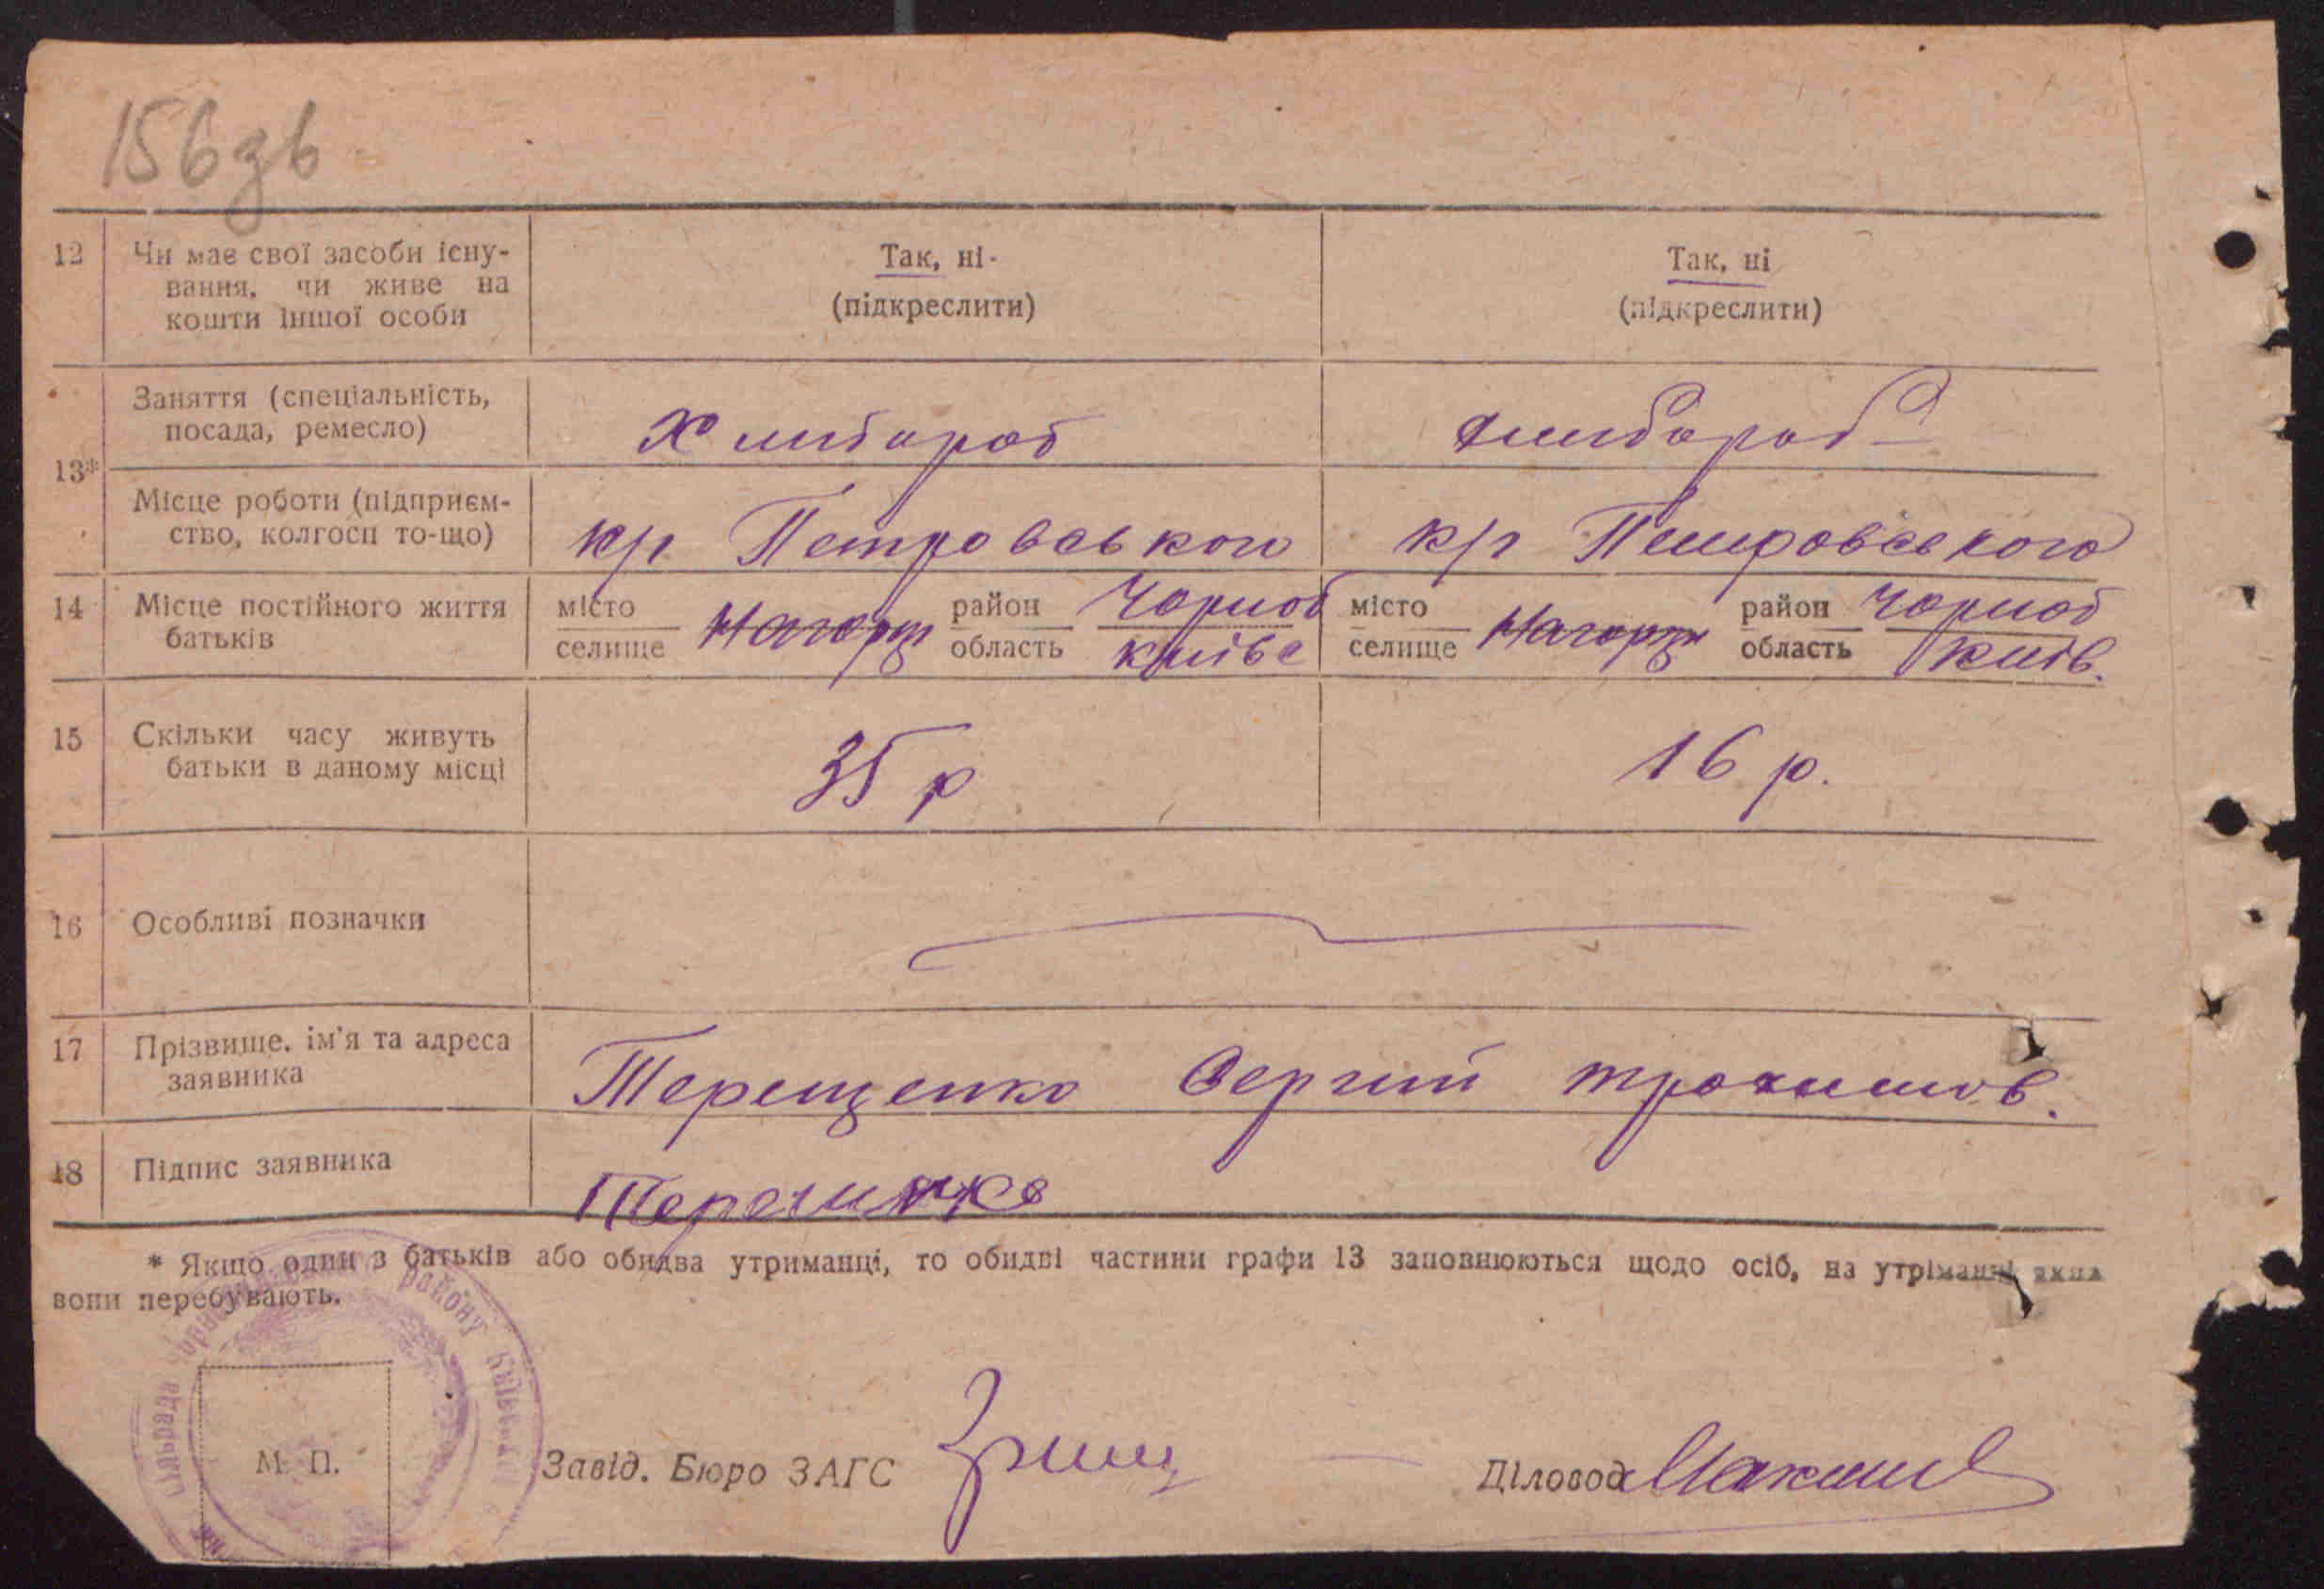 156зв
12 Чи має свої засоби існу-
вання, чи живе на
кошти іншої особи
Так, ні
(підкреслити)
Так, ні
(підкреслити)
13*
Заняття (спеціальність,
посада, ремесло)
Хлибороб
хлибороб
Місце роботи (підприєм-
ство, колгосп то-що)
к/г Петровського
к/г Петровського
14 Місце постійного життя
батьків
місто
селище
Нагорці
район Чорноб
область Київс
місто
селище
Нагорці
район Чорноб
область Київ.
15 Скільки часу живуть
батьки в даному місці
35 р
16 р.
16 Особливі позначки
17 Прізвище, ім'я та адреса
заявника
Терещенко Сергий Трохимов.
18 Підпис заявника
* Якщо один з батьків або обидва утриманці, то обидві частини графи 13 заповнюються щодо осіб, на утріманні яких
вони перебувають.
району Київської
М. П.
Завід. Бюро ЗАГС
Діловод